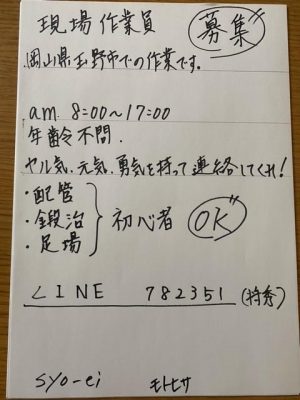 現場作業員 募集
岡山県玉野市での作業です。
am 8:00〜17:00
年齢不問.
ヤル気、元気、勇気を持って連絡してくれ!
・配管
・鍛冶
・足場
初心者 OK
LINE 782351 (将秀)
syo-ei モトヒサ